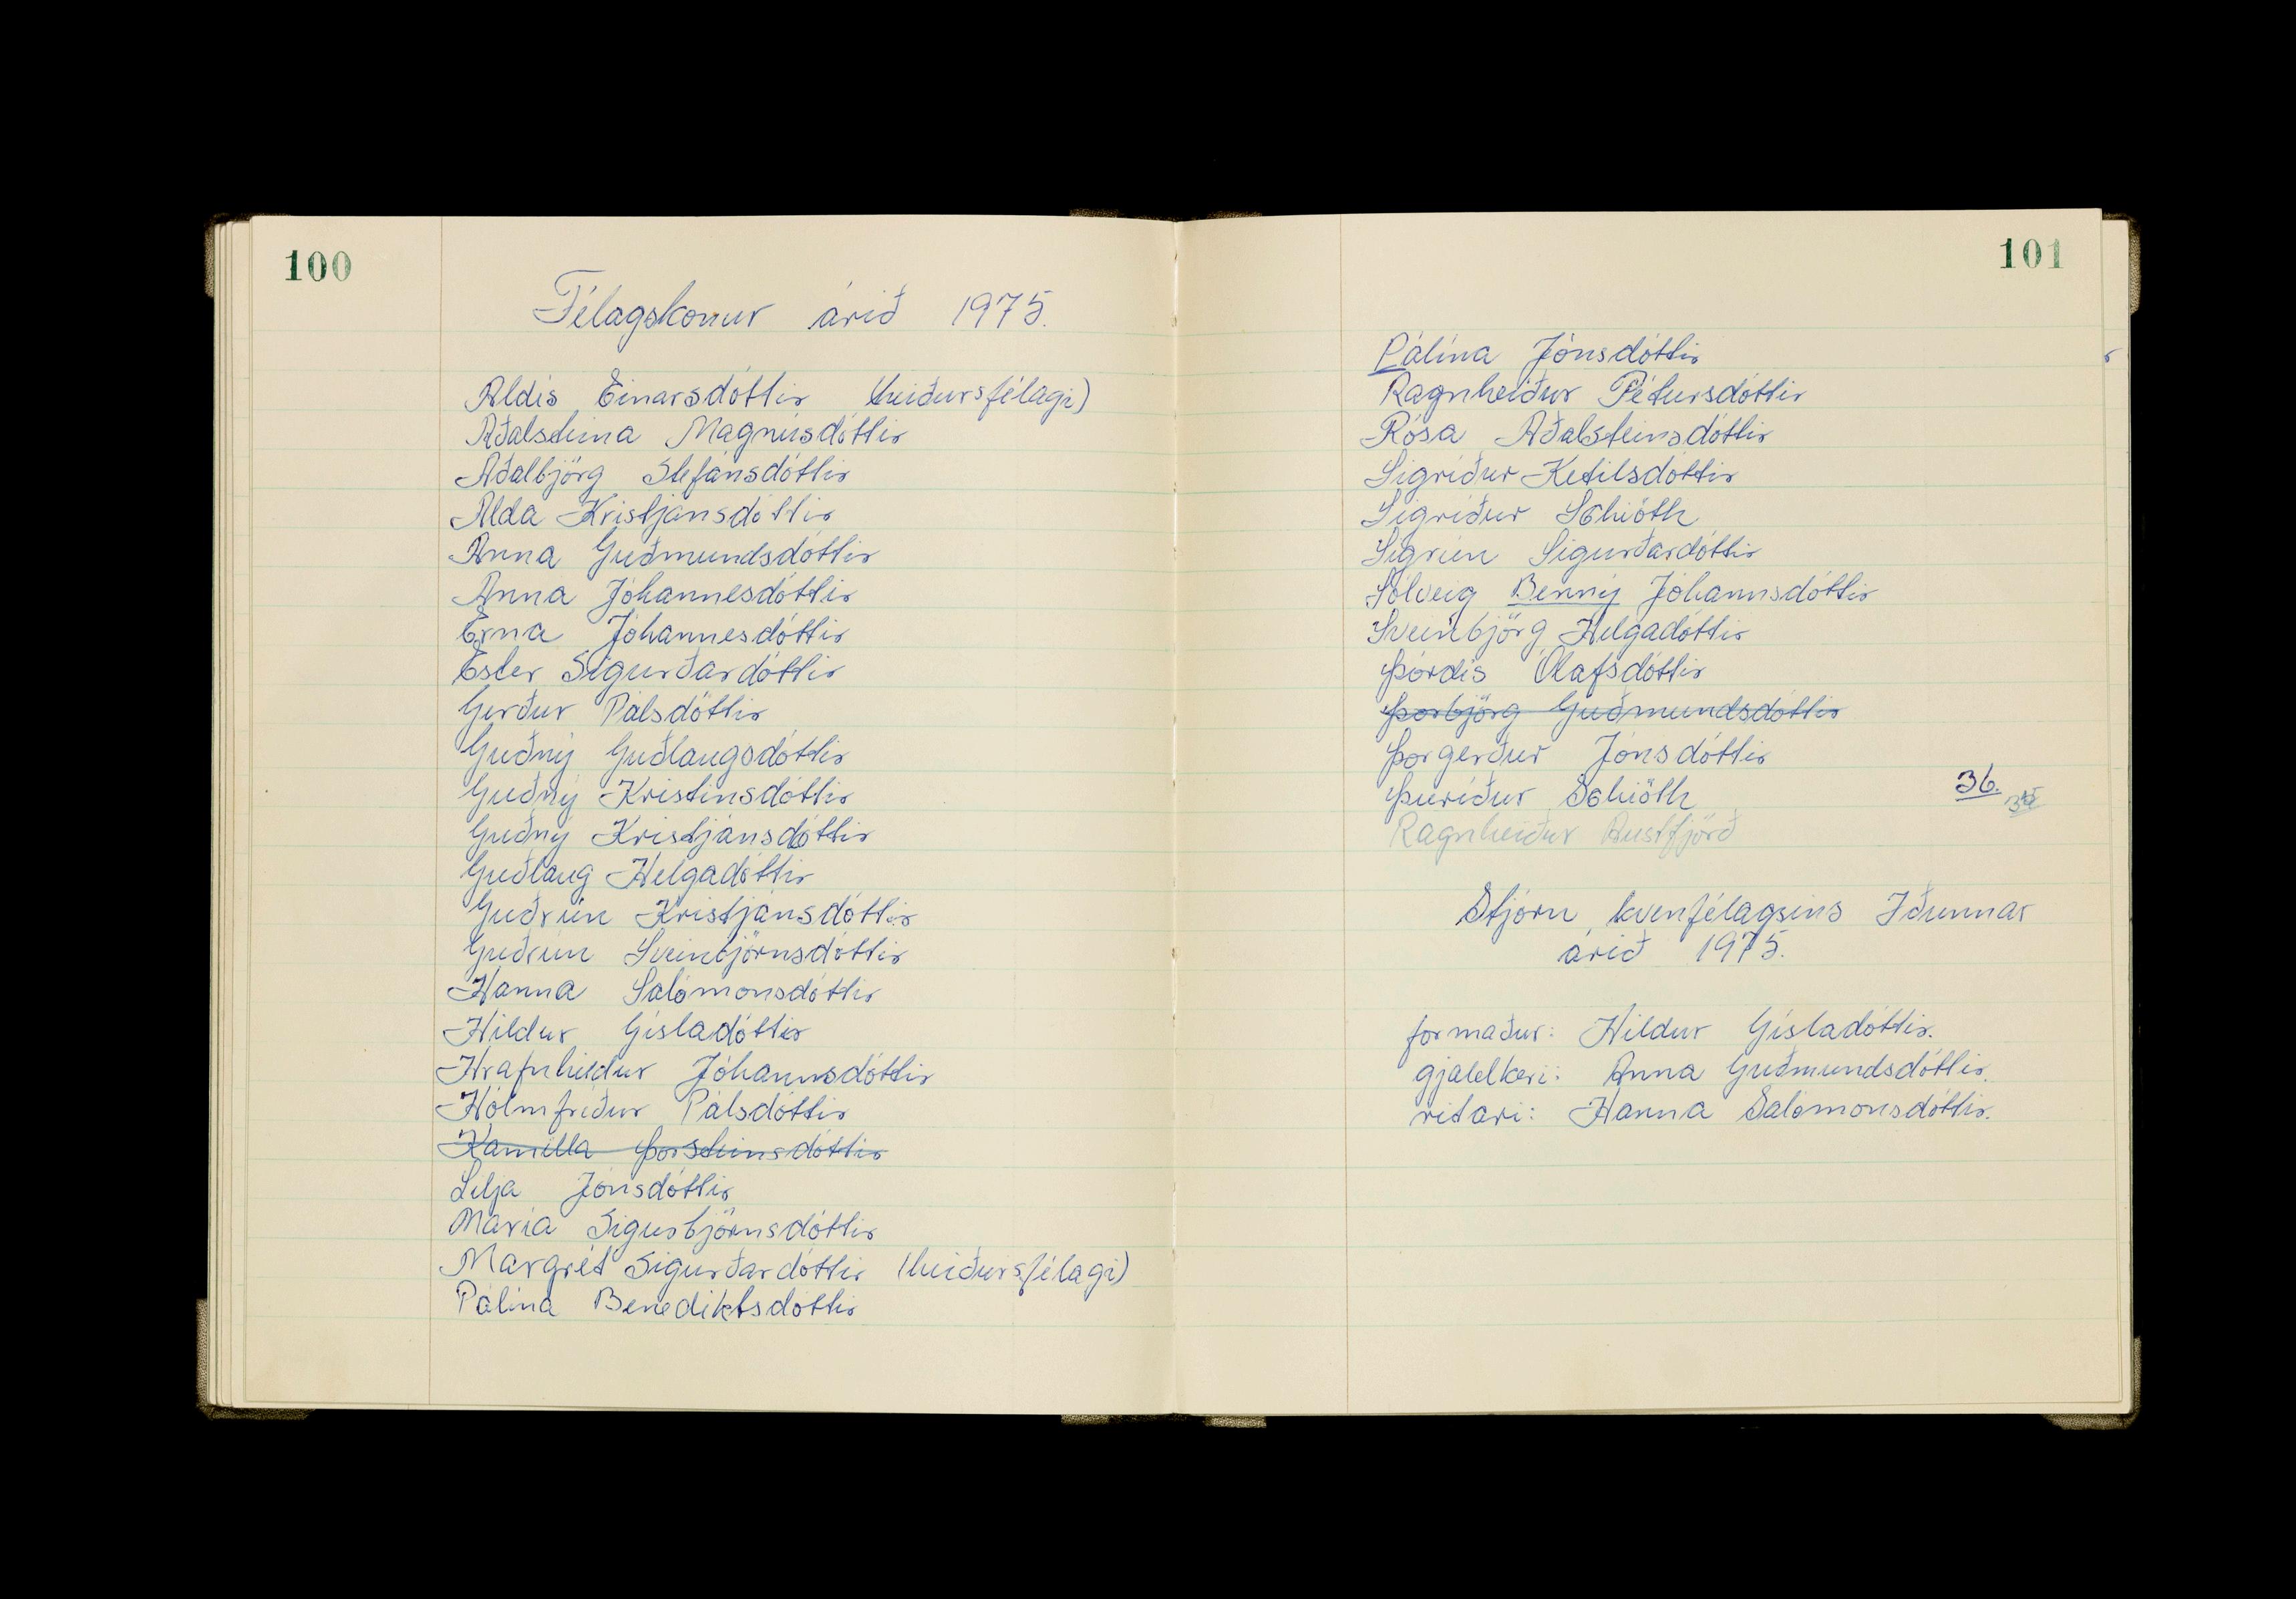 100
Félagskonur árið 1975.
Aldís Einarsdóttir (heiðursfélagi)
Aðalsteina Magnúsdóttir
Aðalbjörg Stefánsdóttir
Alda Kristjánsdóttir
Anna Guðmundsdóttir
Anna Jóhannesdóttir
Erna Jóhannesdóttir
Ester Sigurðardóttir
Gerður Pálsdóttir
Guðný Guðlaugsdóttir
Guðný Kristinsdóttir
Guðný Kristjánsdóttir
Guðlaug Helgadóttir
Guðrún Kristjánsdóttir
Guðrún Sveinbjörnsdóttir
Hanna Salómonsdóttir
Hildur Gísladóttir
Hrafnhildur Jóhannsdóttir
Hólmfríður Pálsdóttir
Kamilla Þorsteinsdóttir
Lilja Jónsdóttir
María Sigurbjörnsdóttir
Margrét Sigurðardóttir (heiðursfélagi)
Pálína Benediktsdóttir
101
Pálína Jónsdóttir
Ragnheiður Pétursdóttir
Rósa Aðalsteinsdóttir
Sigríður Ketilsdóttir
Sigríður Schiöth
Sigrún Sigurðardóttir
Sólveig Benný Jóhannsdóttir
Sveinbjörg Helgadóttir
Þórdís Ólafsdóttir
Þorbjörg Guðmundsdóttir
Þorgerður Jónsdóttir
Þuríður Schiöth 36.
Ragnheiður Austfjörð
Stjórn kvenfélagsins Iðunnar
árið 1975.
formaður: Hildur Gísladóttir.
gjaldkeri: Anna Guðmundsdóttir.
ritari: Hanna Salómonsdóttir.